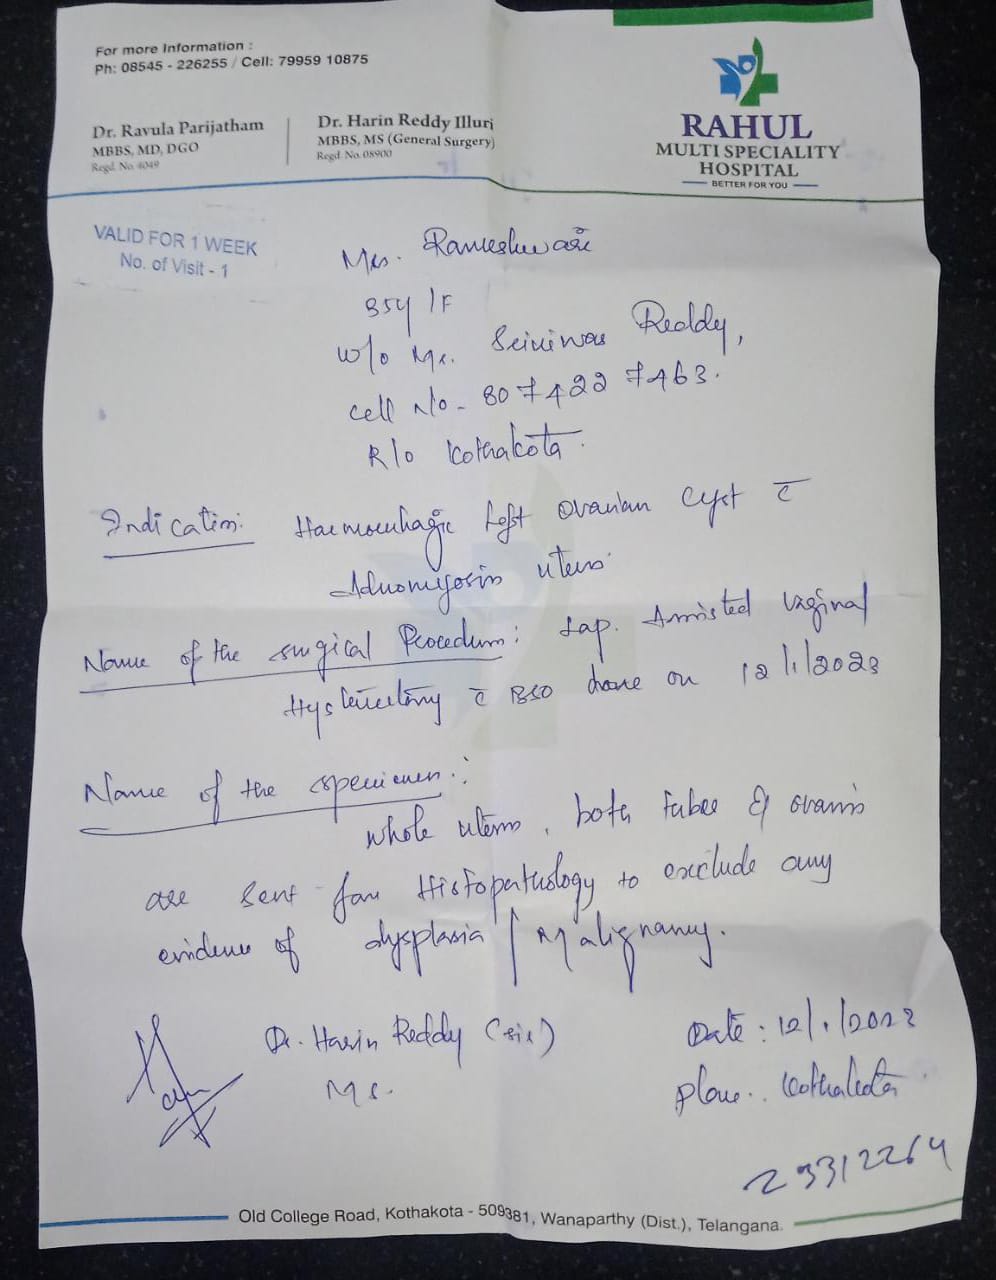 For more Information :
Ph: 08545 - 226255 / Cell: 79959 10875
Dr. Ravula Parijatham
MBBS, MD, DGO
Regd. No. 4049
Dr. Harin Reddy Illuri
MBBS, MS (General Surgery)
Regd. No. 08900
RAHUL
MULTI SPECIALITY
HOSPITAL
BETTER FOR YOU
VALID FOR 1 WEEK
No. of Visit - 1
Mrs. Rameshwari
35y/F
w/o Mr. Srinivas Reddy,
cell No- 807422 7463.
R/o Kothakota.
Indication: Haemorrhagic Left Ovarian Cyst c̄
Adnomyosis uterus
Name of the surgical Procedure: Lap. Assisted vaginal
Hysterectomy c̄ BSO done on 12/1/2023
Name of the specimen:
whole uterus, both tubes & ovaries
are sent for Histopathology to exclude any
evidence of dysplasia / Malignancy.
Dr. Harin Reddy (sir)
MS.
Date: 12/1/2023
Place: Kothakota
23312264
Old College Road, Kothakota - 509381, Wanaparthy (Dist.), Telangana.